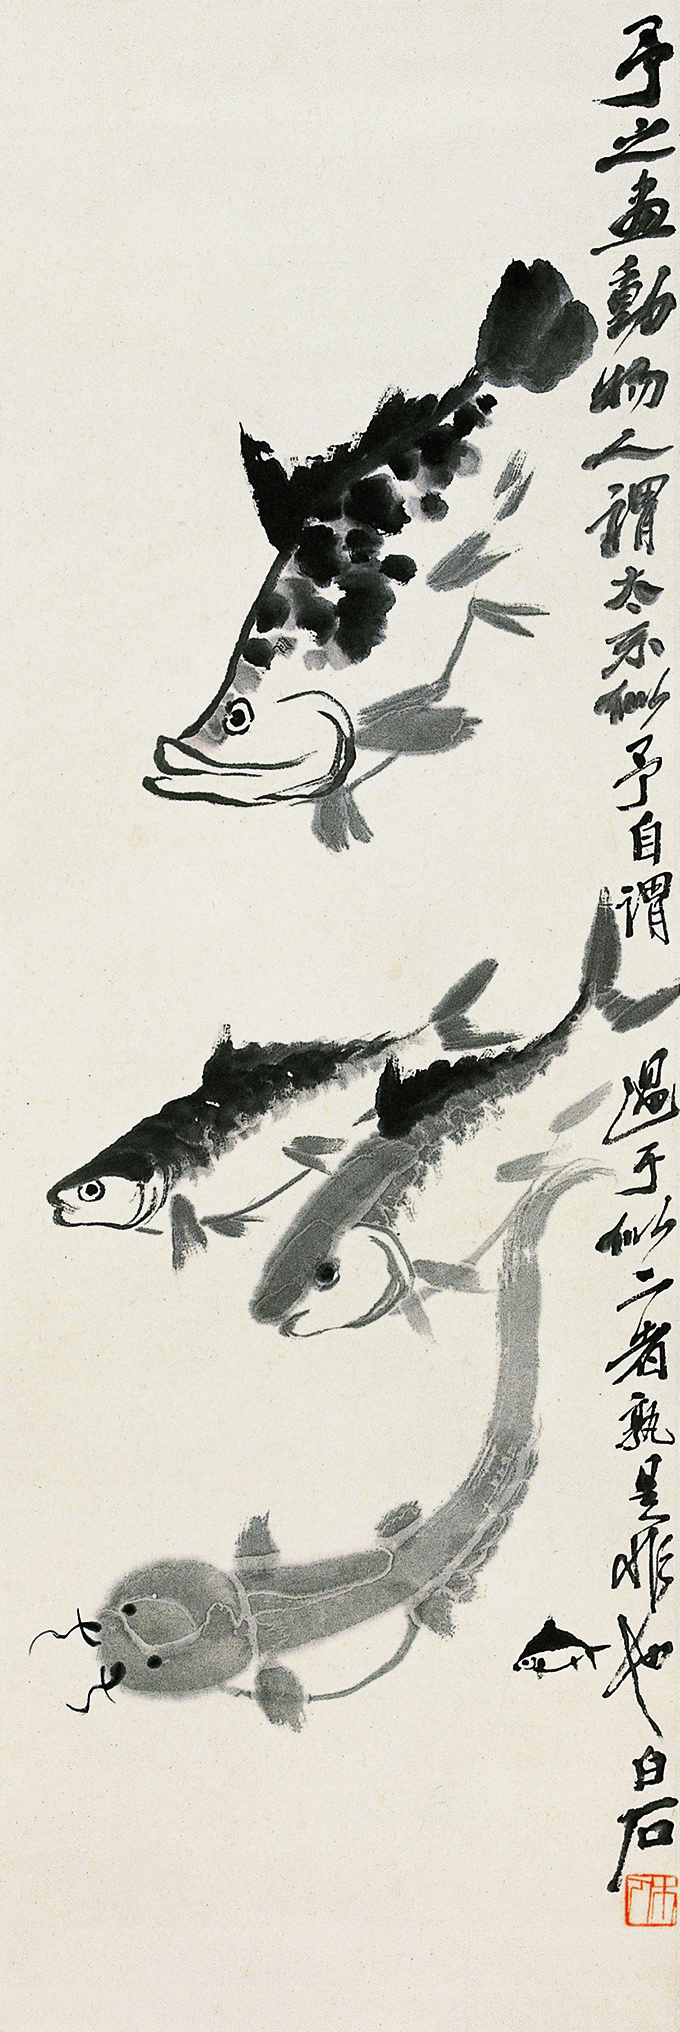 予之画動物人謂太不似予自謂過于似二者孰是非也白石
木人